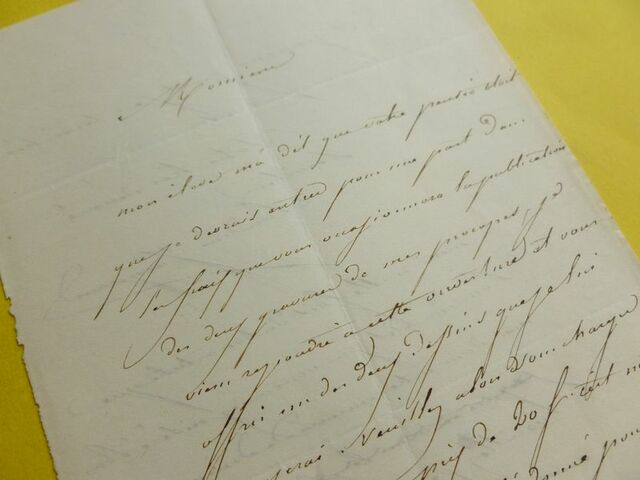 Monsieur
mon élève m'a dit que votre pensée était
que je devrais entrer pour une part dans
les frais que vous occasionnera la publication
des deux gravures de mes , je
viens répondre à cette ouverture et vous
offrir un des deux dessins que je lui
Veuillez alors vous charger
prix de 20 f. tout
donné pour